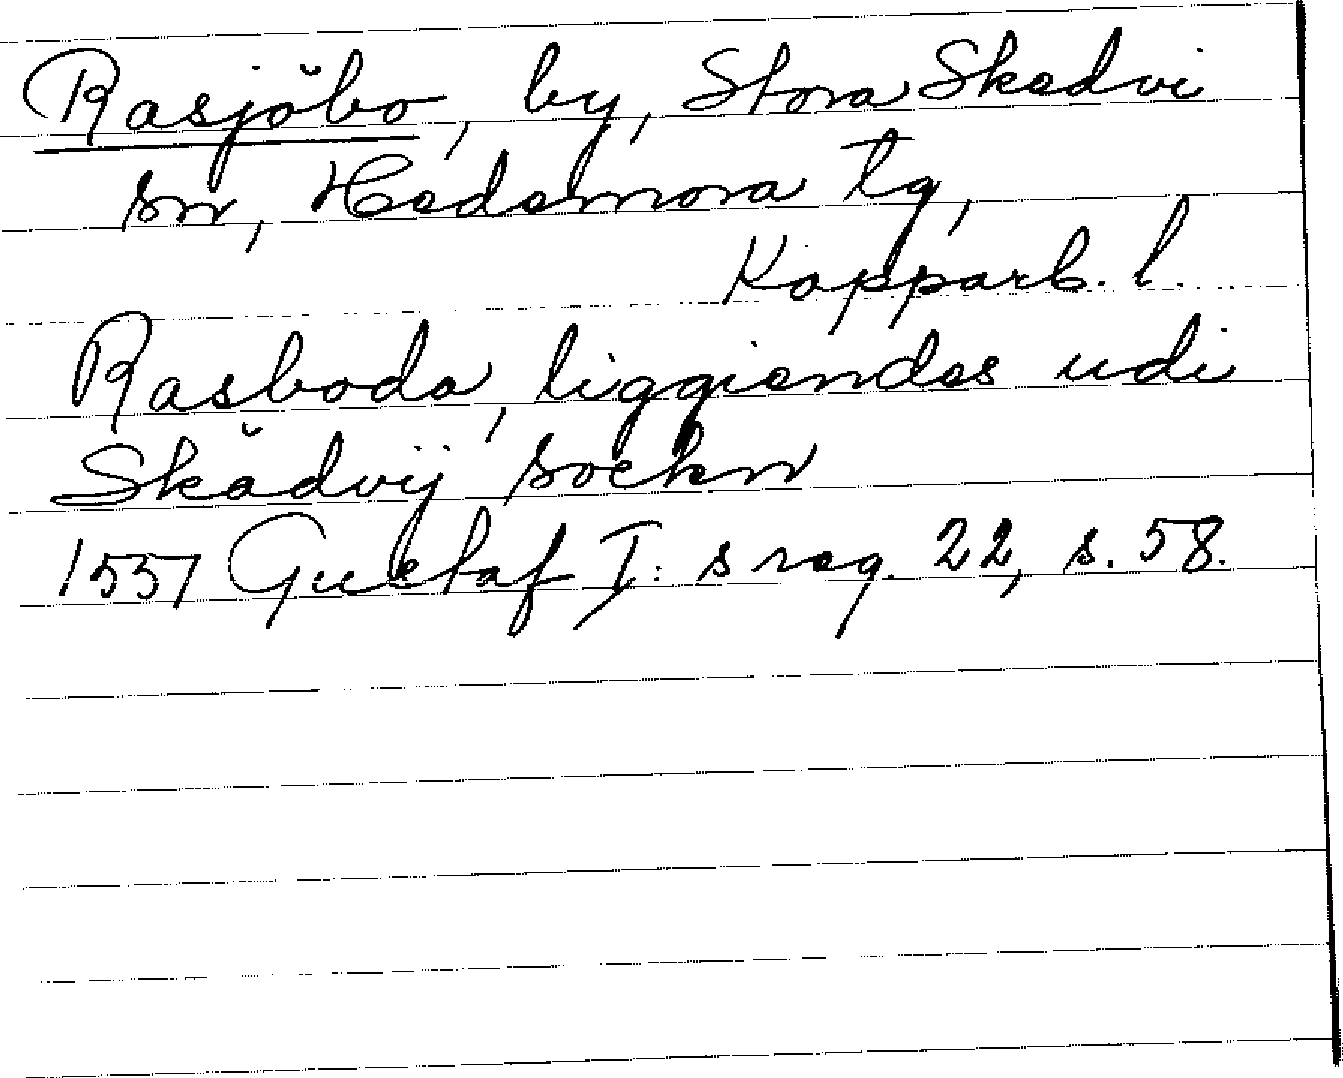 Rasjöbo, by, Stora Skedvi
sn, Hedemora tg,
Kopparb. l.
Rasboda, liggiendes udi
Skädvij sockn
1557 Gustaf I: s reg. 22, s. 58.